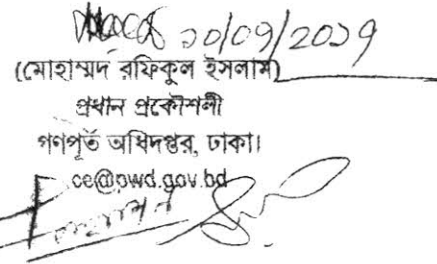 ১০/০৭/২০১৭
(মোহাম্মদ রফিকুল ইসলাম)
প্রধান প্রকৌশলী
গণপূর্ত অধিদপ্তর, ঢাকা।
ce@pwd.gov.bd